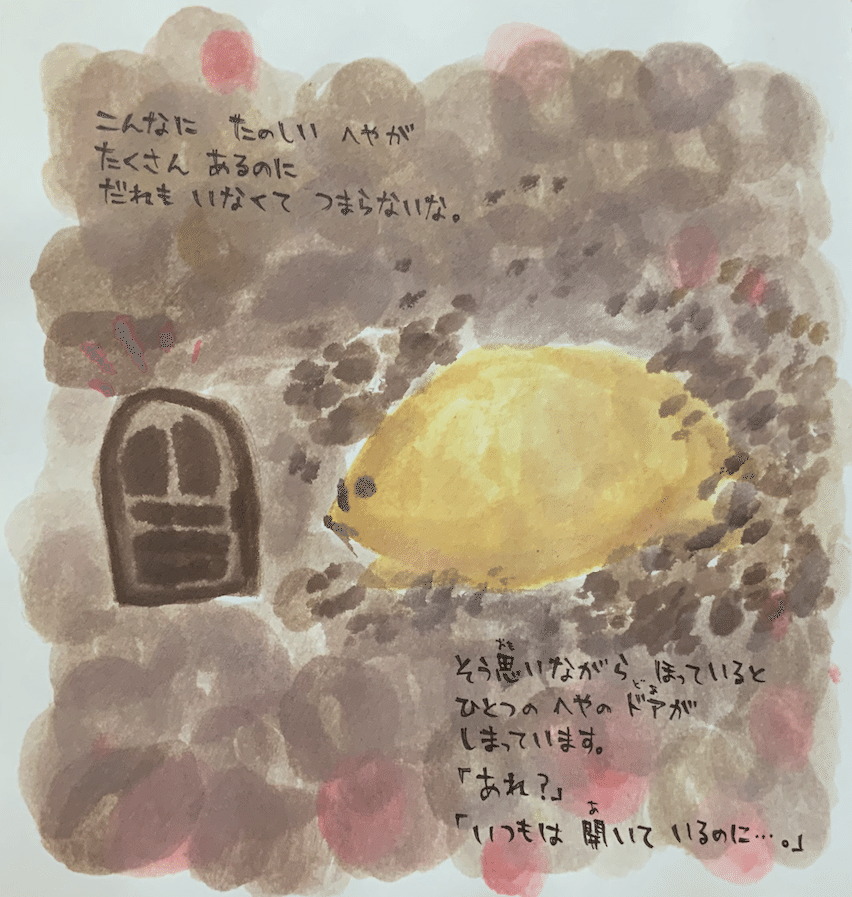 こんなに たのしい へやが
たくさん あるのに
だれも いなくて つまらないな。
そう思いながら ほっていると
ひとつの へやの ドアが
しまっています。
「あれ?」
「いつもは 開いて いるのに…。」